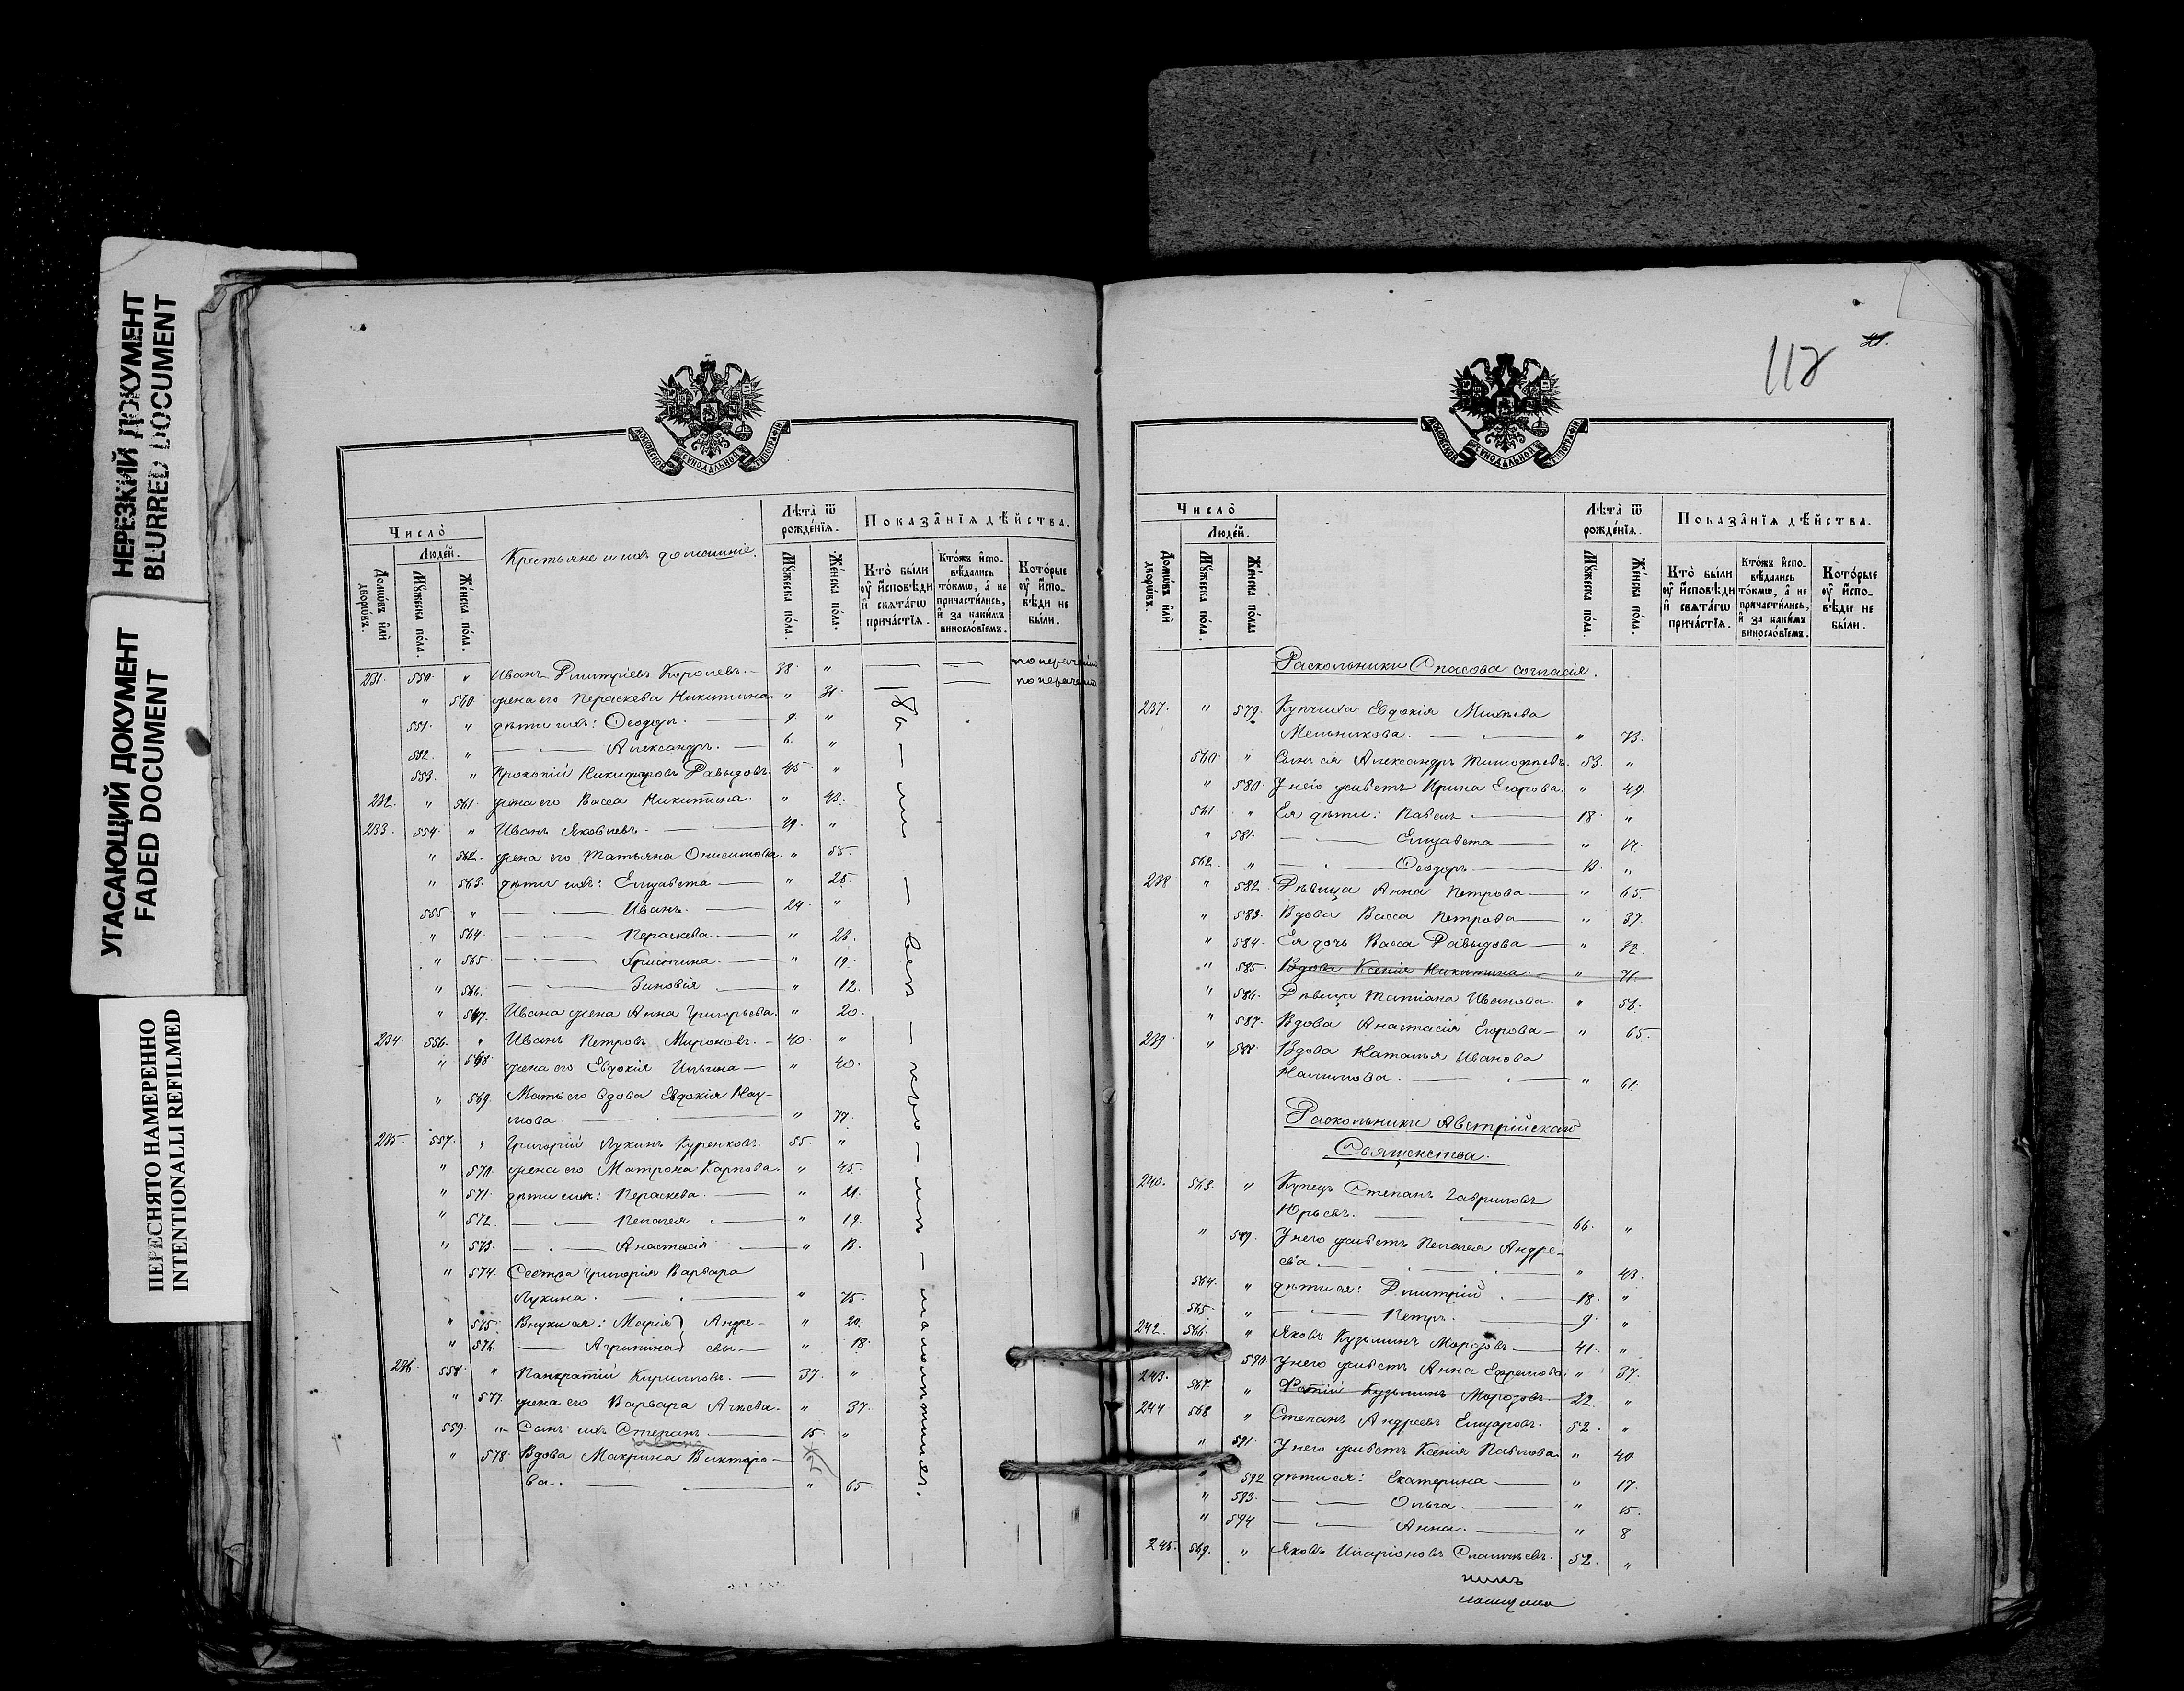 НЕРЕЗКИЙ ДОКУМЕНТ
BLURRED DOCUMENT
УГАСАЮЩИЙ ДОКУМЕНТ
FADED DOCUMENT
ПЕРЕСНЯТО НАМЕРЕННО
INTENTIONALLI REFILMED
МОСКОВСКОЙ СѴНОДАЛЬНОЙ ТИПОГРАФІИ
Число̀
Людей.
Домѡвъ и҆лѝ дворѡвъ.
Мꙋжеска пола.
Же́нска по́ла.
Крестьяне и ихъ домашніе.
Лѣта̀ ѿ рожде́нїѧ.
Мꙋжеска по́ла.
Же́нска по́ла.
Показа̑нїѧ дѣ́йства.
Кто̀ бы́ли ᲂу҆ и҆сповѣди и҆ свѧта́гѡ прича́стїѧ.
Кто́жъ и҆сповѣ́дались то́кмѡ, а҆ не причасти́лись, и҆ за каки́мъ винослові́емъ.
Кото́рые ᲂу҆ и҆сповѣ́ди не бы́ли.
231. 550. " Иванъ Дмитріевъ Королевъ. — 38. "
" 560 жена его Параскева Никитина " 31.
551. " дѣти ихъ: Ѳеодоръ. — 9. "
552. " — Александръ. — 6. "
553. " Прокопій Никифоровъ Давыдовъ. 45. "
232. " 561. жена его Васса Никитина. " 43.
233. 554. " Иванъ Яковлевъ. — 49. "
" 562. жена его Татьяна Онисимова. " 55.
" 563. дѣти ихъ: Елизавета — " 28.
555 " — Иванъ. — 24. "
" 564. — Параскева — " 23.
" 565. — Христина. — " 19.
" 566. — Зиновія — " 12.
" 567. Ивана жена Анна Григорьева. " 20.
234. 556. " Иванъ Петровъ Мироновъ. — 40. "
" 568. жена его Евдокія Ильина — " 40.
" 569. Мать его вдова Евдокія Нау-
мова. — " 77.
235. 557. " Григорій Лукинъ Куренковъ. 55. "
" 570. жена его Матрона Карпова. " 45.
" 571. дѣти ихъ: Параскева. — " 21.
" 572. — Пелагея — " 19.
" 573. — Анастасія — " 13.
" 574. Сестра Григорія Варвара
Лукина. — " 75.
" 575. Внуки ея: Марія } Андре- " 20.
" 576. — Агрипина } евы — " 18.
236. 558. " Панкратій Кирилловъ. — 37. "
" 577. жена его Варвара Агѣева. " 37.
559. " Сынъ ихъ Степанъ. — 15. "
" 578 Вдова Макрина Викторо-
ва. — " 65.
112
21.
МОСКОВСКОЙ СѴНОДАЛЬНОЙ ТИПОГРАФІИ
Число̀
Людей.
Домѡвъ и҆лѝ дворѡвъ.
Мꙋжеска по́ла.
Же́нска по́ла
Лѣта̀ ѿ рожде́нїѧ.
Мꙋжеска по́ла.
Же́нска по́ла.
Показа̑нїѧ дѣ́йства.
Кто̀ бы́ли ᲂу҆ и҆сповѣди и҆ свѧта́гѡ прича́стїѧ.
Кто́жъ и҆сповѣ́дались то́кмѡ, а҆ не причасти́лись, и҆ за каки́мъ винослові́емъ.
Кото́рые ᲂу҆ и҆сповѣ́ди не бы́ли.
Раскольники Спасова согласія.
237. " 579. Купчиха Евдокія Михѣева
Мельникова. — " 73.
560. " Сынъ ея Александръ Тимофѣевъ. 53. "
" 580. У него живетъ Ирина Егорова. " 49
561. " Ея дѣти: Павелъ — 18. "
" 581. — Елизавета — " 17.
562. " — Ѳеодоръ — 13. "
238 " 582. Дѣвица Анна Петрова — " 65.
" 583. Вдова Васса Петрова — " 37.
" 584. Ея дочь Васса Давыдова — " 12.
" 585. Вдова Ксенія Никитина. — " 71.
" 586. Дѣвица Татіана Иванова. " 56.
" 587. Вдова Анастасія Егорова — " 65.
239 " 588. Вдова Наталья Иванова
Налимова. — " 61.
Раскольники Австрійскаго
Священства.
240. 563. " Купецъ Степанъ Гавриловъ
Юрьевъ. — 66. "
" 589. У него живетъ Пелагея Андре-
ева. — " 43.
564. " дѣти ея: Дмитрій — 18. "
565. " — Петръ. — 9. "
242. 566. " Яковъ Кузьминъ Морозовъ — 41. "
590 У него живетъ Анна Ефремова. " 37.
243. 567. " Фотій Кузьминъ Морозовъ 22. "
244 568 " Степанъ Андреевъ Елизаровъ. 52. "
" 591. У него живетъ Ксенія Павлова " 40
" 592 дѣти ея: Екатерина — " 17.
" 593. — Ольга. — " 15.
" 594 — Анна. — " 8.
245. 569. " Яковъ Иларіоновъ 52. "